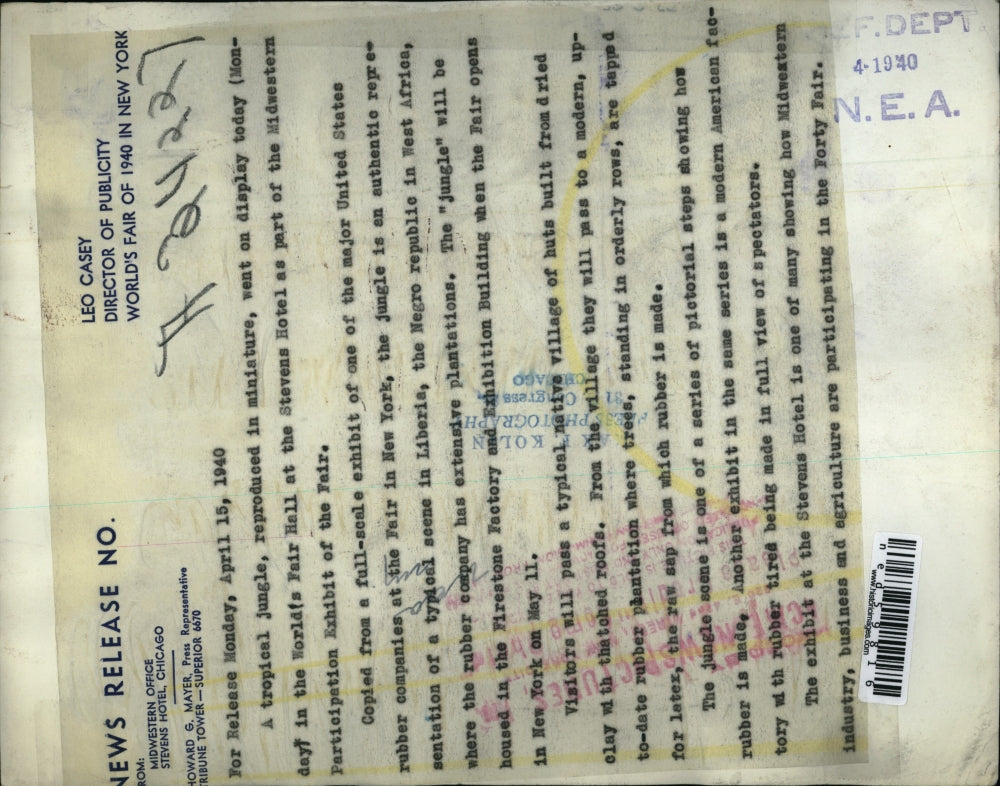 NEWS RELEASE NO.
FROM:
MIDWESTERN OFFICE
STEVENS HOTEL, CHICAGO
HOWARD G. MAYER, Press Representative
TRIBUNE TOWER — SUPERIOR 6670
LEO CASEY
DIRECTOR OF PUBLICITY
WORLD'S FAIR OF 1940 IN NEW YORK
For Release Monday, April 15, 1940
A tropical jungle, reproduced in miniature, went on display today (Mon-
day) in the World's Fair Hall at the Stevens Hotel as part of the Midwestern
Participation Exhibit of the Fair.
Copied from a full-scale exhibit of one of the major United States
rubber companies at the Fair in New York, the jungle is an authentic repre-
sentation of a typical scene in Liberia, the Negro republic in West Africa,
where the rubber company has extensive plantations. The "jungle" will be
housed in the Firestone Factory and Exhibition Building when the Fair opens
in New York on May 11.
Visitors will pass a typical native village of huts built from dried
clay with thatched roofs. From the village they will pass to a modern, up-
to-date rubber plantation where trees, standing in orderly rows, are tapped
for later, the raw sap from which rubber is made.
The jungle scene is one of a series of pictorial steps showing how
rubber is made, Another exhibit in the same series is a modern American fac-
tory with rubber tired being made in full view of spectators.
The exhibit at the Stevens Hotel is one of many showing how Midwestern
industry, business and agriculture are participating in the Forty Fair.
DEPT
4-1940
N.E.A.
KOLIN
PRESS PHOTOGRAPH
31 Congress
CHICAGO
www.historicimages.com
ned59816